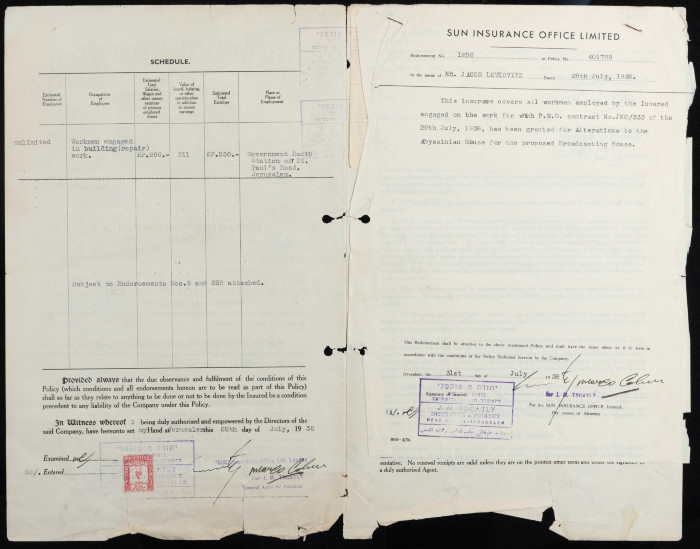 SCHEDULE.
Estimated Number of Employees
Occupation of Employees
Estimated Total Salaries, Wages and other earnings of persons employed direct
Value of board, lodging, or other consideration in addition to money earnings
Estimated Total Earnings
Place or Places of Employment
unlimited
Workmen engaged
in building(repair)
work.
£P.250.-
nil
£P.250.-
Government Radio
Station off St.
Paul's Road.
Jerusalem.
Subject to Endorsements Nos.5 and 239 attached.
Provided always that the due observance and fulfilment of the conditions of this
Policy (which conditions and all endorsements hereon are to be read as part of this Policy)
shall so far as they relate to anything to be done or not to be done by the Insured be a condition
precedent to any liability of the Company under this Policy.
In Witness whereof I being duly authorised and empowered by the Directors of the
said Company, have hereunto set my Hand at Jerusalem this 28th day of July, 1938
Examined
Entered
for J. M. TOCATLY
General Agent for Palestine
SUN INSURANCE OFFICE LIMITED
Endorsement No. 1256 to Policy No. 401789
in the name of MR. JACOB LEVKOVITZ Dated 28th July, 1938.
This insurance covers all workmen employed by the Insured
engaged on the work for which P.W.D. contract No.JEC/333 of the
29th July, 1938, has been granted for Alterations to the
Abyssinian House for the proposed Broadcasting House.
This Endorsement shall be attached to the above mentioned Policy and shall have the same effect as if it were in
accordance with the conditions of the Policy Endorsed hereon by the Company.
Jerusalem, the 31st day of July 1938
Signature of Insured
J. M. TOCATLY
INSURANCE & FINANCE
for J. M. TOCATLY
For the SUN INSURANCE OFFICE Limited.
Per power of Attorney
sentative. No renewal receipts are valid unless they are on the printed office form and under the signature of
a duly authorised Agent.